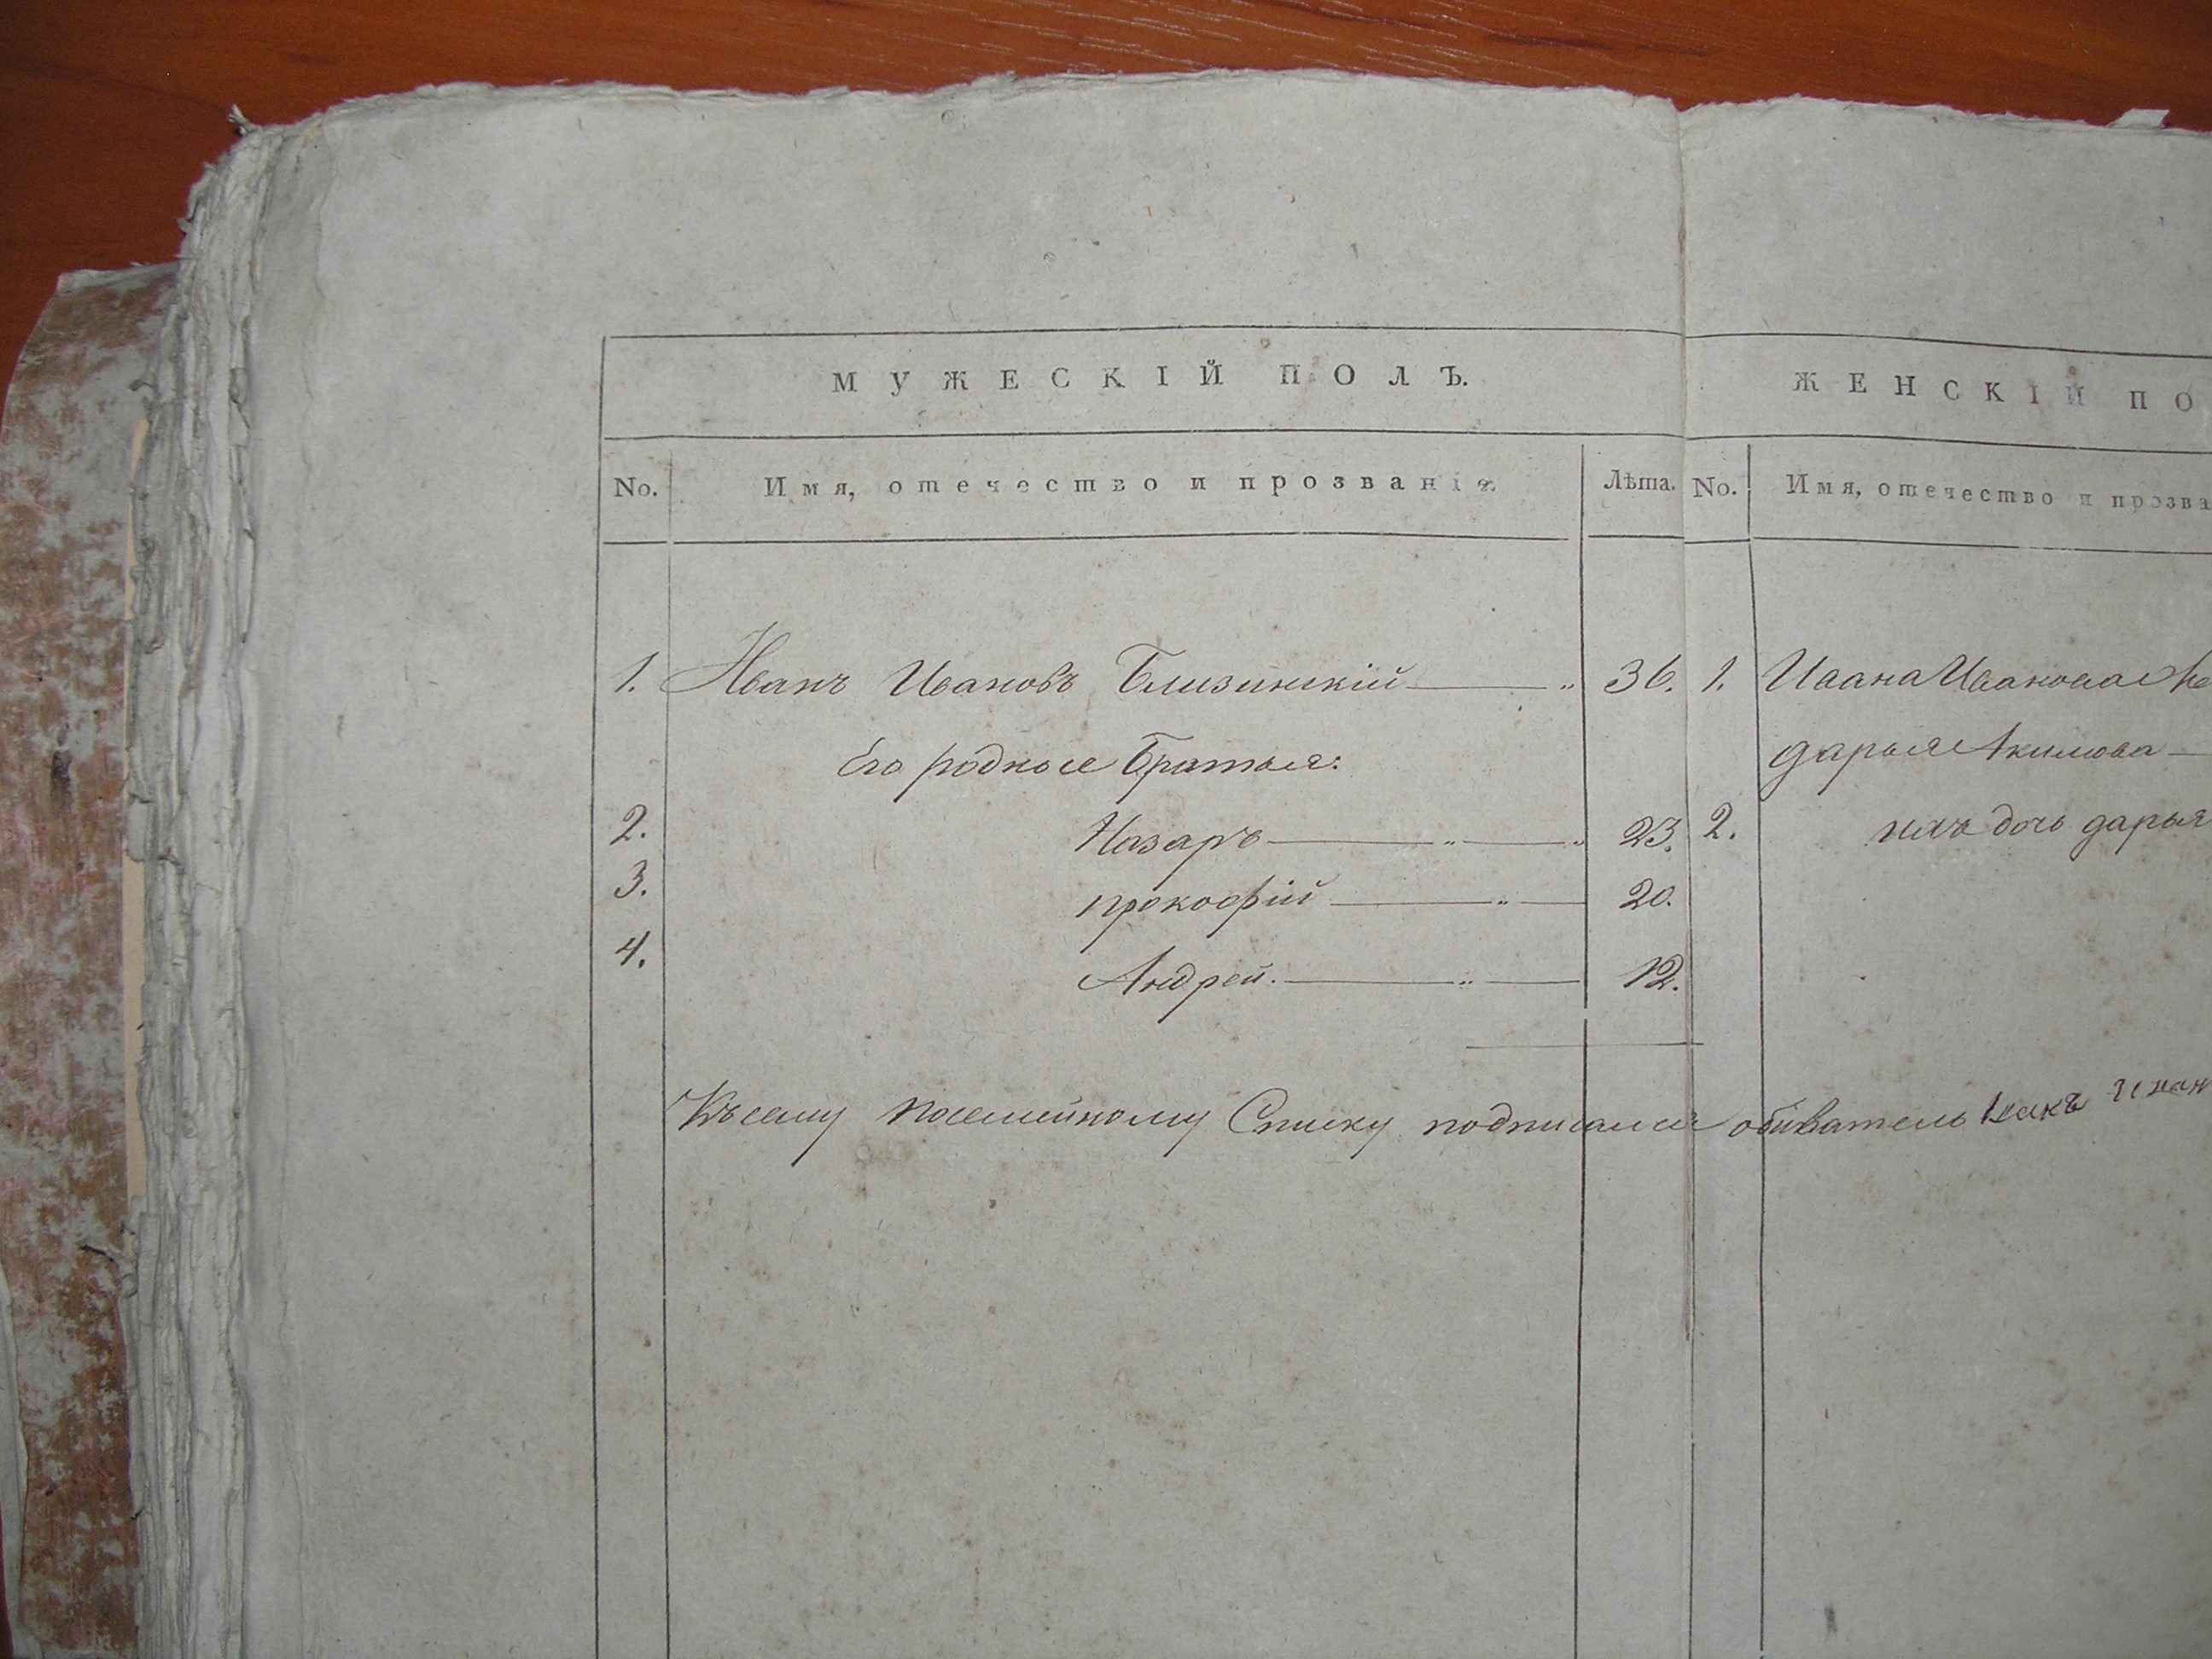 МУЖЕСКІЙ ПОЛЪ.
No. Имя, отечество и прозваніе. Лѣта.
1. Иванъ Ивановъ Близинскій 36.
Его родные Братья:
2. Назаръ 23.
3. прокофій 20.
4. Андрей. 12.
ЖЕНСКІЙ ПО
No. Имя, отечество и прозва
1. Ивана Иванова Же
дарья Акимова
2. ихъ дочь дарья
Къ сему посемейному Списку подписался обиватель